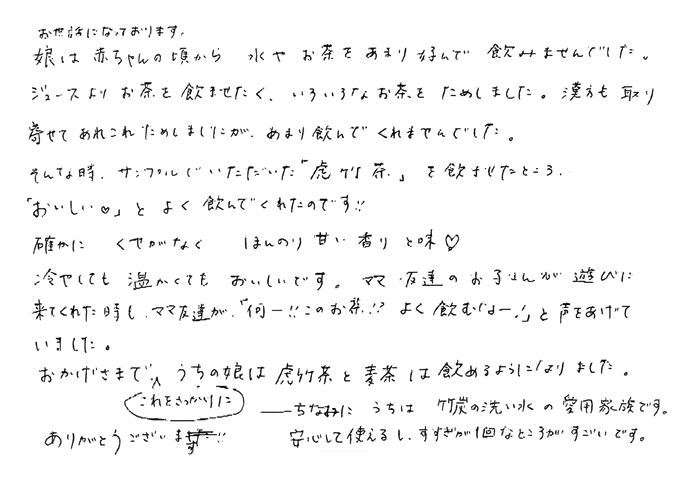 お世話になっております。
娘は赤ちゃんの頃から 水や お茶を あまり 好んで 飲みませんでした。
ジュースより お茶を 飲ませたく、いろいろなお茶を ためしました。漢方も 取り
寄せて あれこれ ためしましたが、あまり飲んで くれませんでした。
そんな時、サンプルでいただいた「虎竹茶」を飲ませたところ、
「おいしい♡」と よく 飲んでくれたのです!!
確かに くせがなく ほんのり 甘い 香り と味♡
冷やしても 温かくても おいしいです。ママ友達のお子さんが 遊びに
来てくれた時も、ママ友達が、「何ー!!このお茶!? よく飲むねー!」と声をあげて
いました。
おかげさまで、うちの娘は 虎竹茶と 麦茶 は 飲めるようになりました。
これをきっかけに
——ちなみに うちは 竹炭の洗い水の 愛用家族です。
ありがとうございます!! 安心して使えるし、すすぎが1回なところがすごいです。